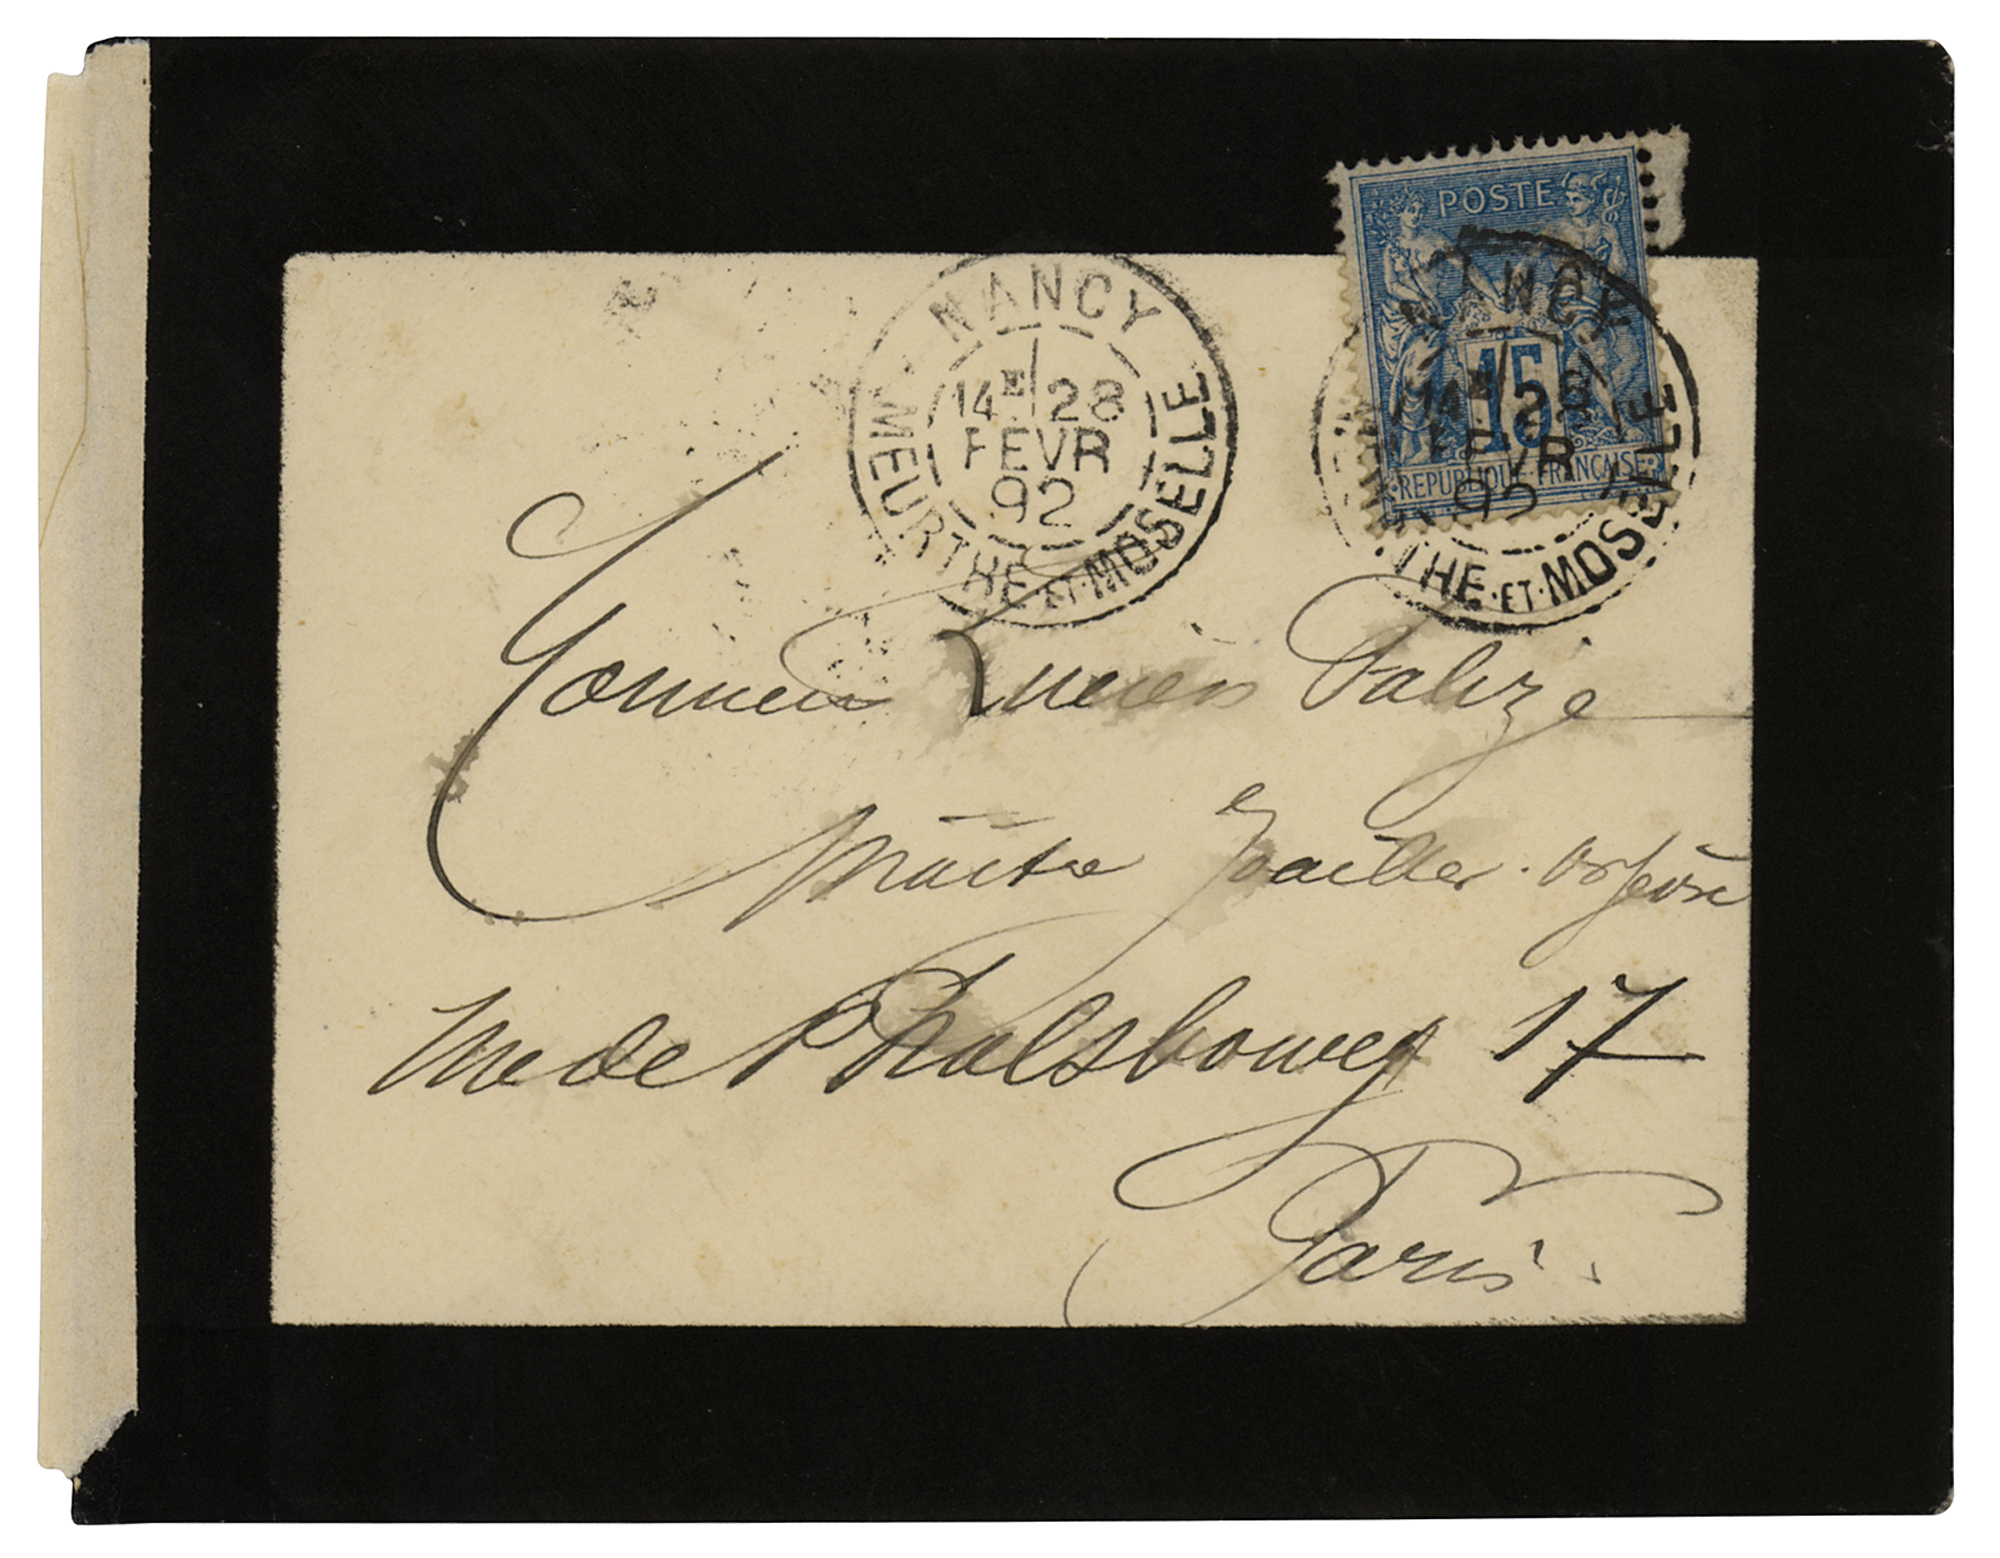 POSTE
15
REPUBLIQUE FRANCAISE
NANCY
14E 28
FEVR
92
MEURTHE ET MOSELLE
NANCY
14E 28
FEVR
92
THE ET MOSELLE
Lucien Falize
Maître Joailler. Orfèvre
rue de Phalsbourg 17
Paris.